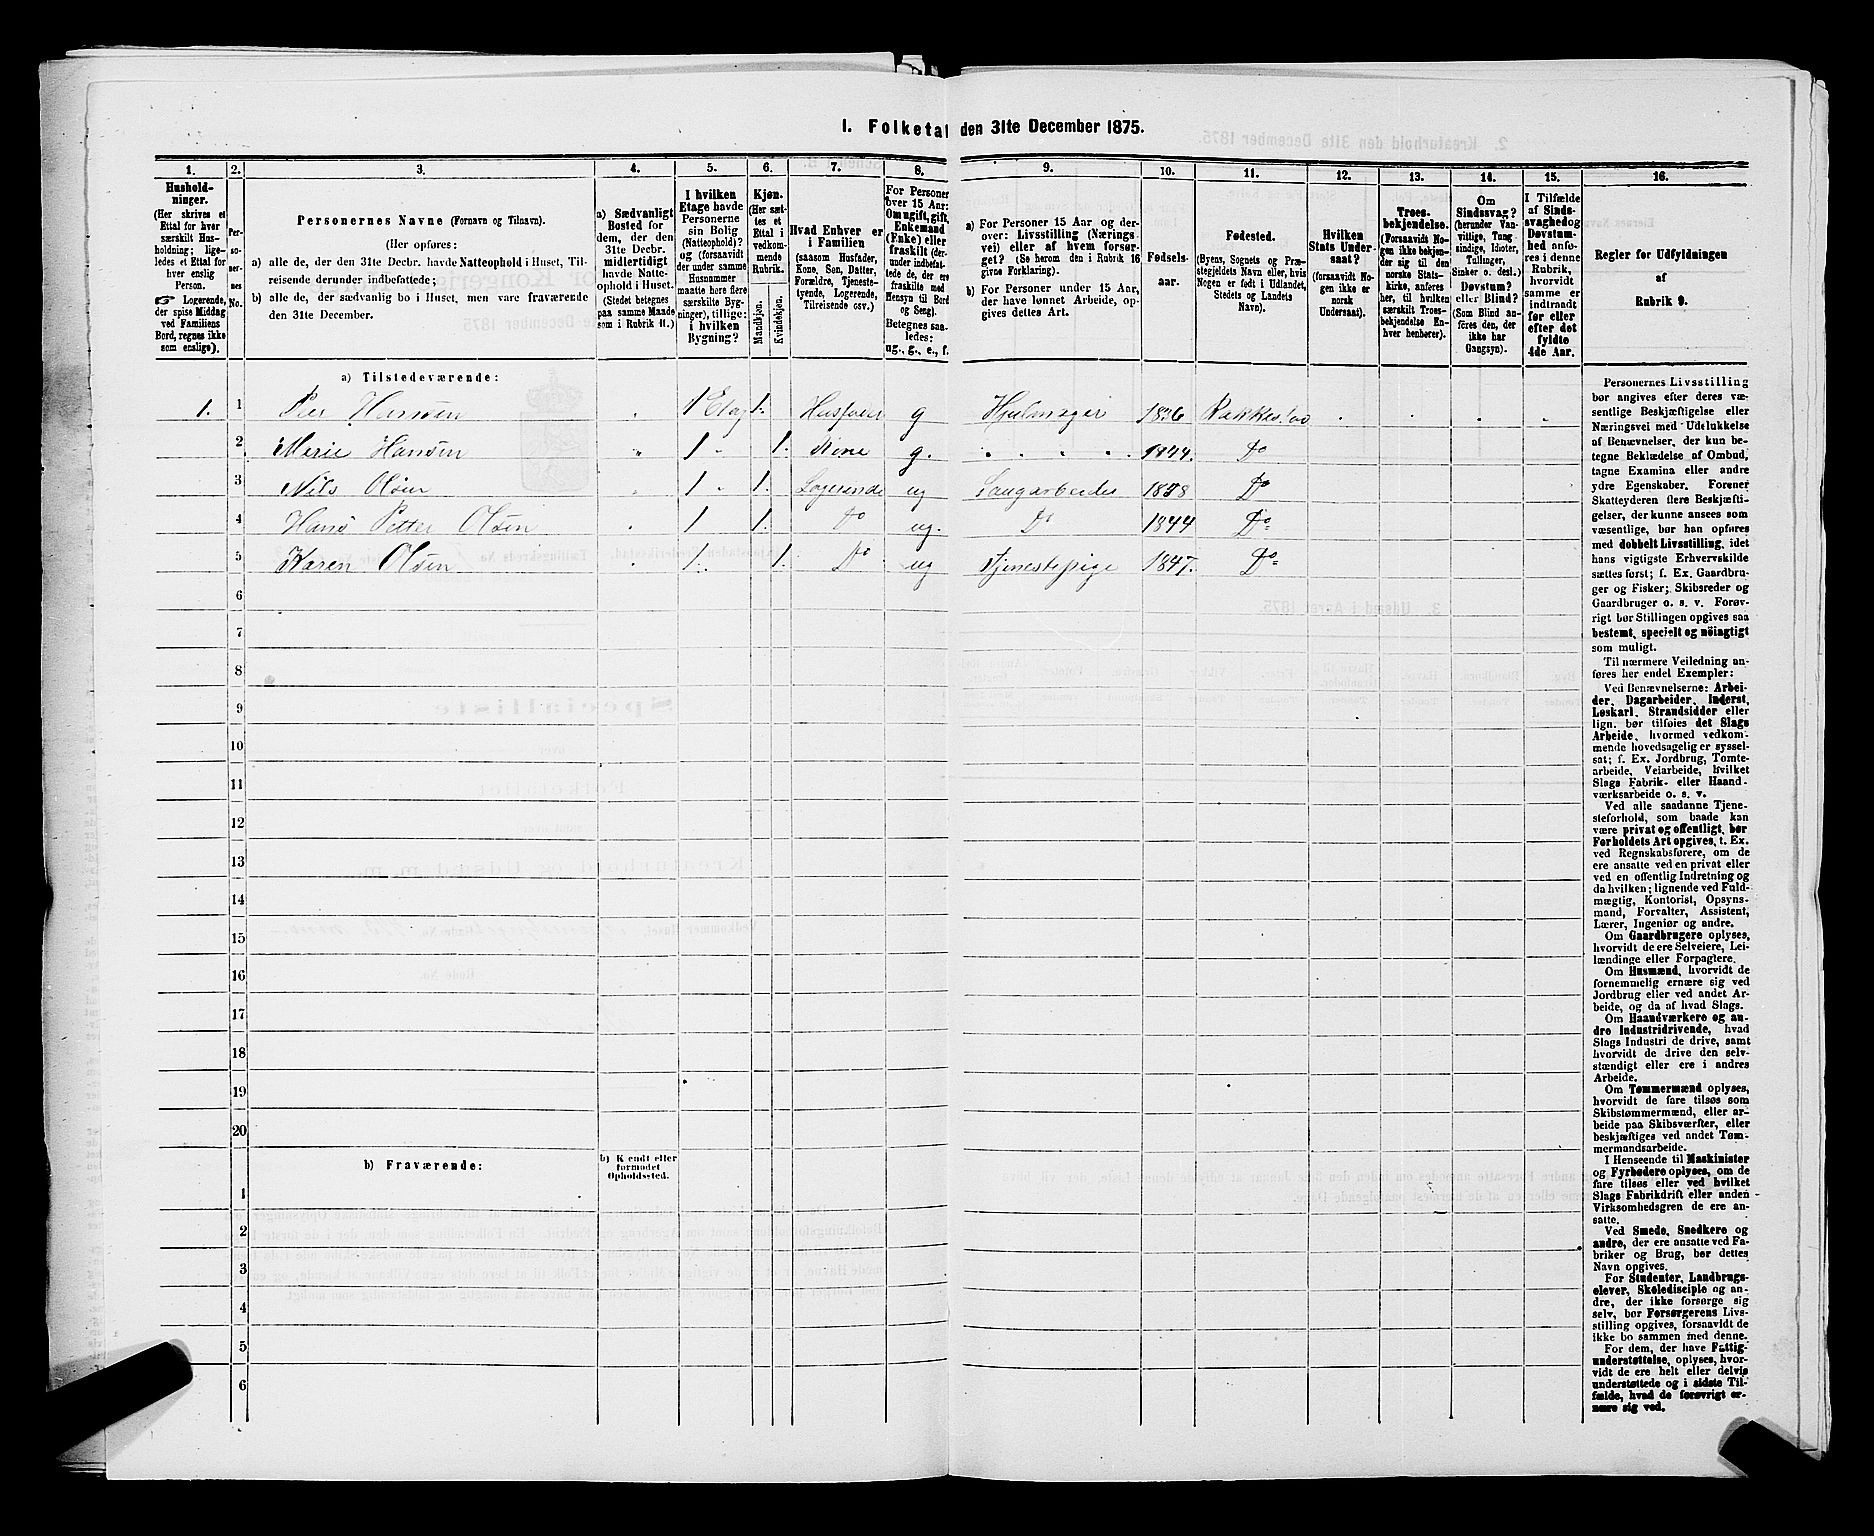 1. Folketal den 31te December 1875.
1. 2. 3. 4. 5. 6. 7. 8. 9. 10. 11. 12. 13. 14. 15. 16.
Hushold-
ninger.
(Her skrives et
Ettal for hver
særskilt Hus-
holdning; lige-
ledes et Ettal for
hver enslig
Person.
☞ Logerende,
der spise Middag
ved Familiens
Bord, regnes ikke
som enslige).
Per-
so-
ner-
nes
No.
Personernes Navne (Fornavn og Tilnavn).
(Her opføres:
a) alle de, der den 31te Decbr. havde Natteophold i Huset, Til-
reisende derunder indbefattede;
b) alle de, der sædvanlig bo i Huset, men vare fraværende
den 31te December.
a) Sædvanligt
Bosted for
dem, der den
31te Decbr.
midlertidigt
havde Natte-
ophold i Huset.
(Stedet betegnes
paa samme Maade
som i Rubrik 11.)
I hvilken
Etage havde
Personerne
sin Bolig
(Natteophold)?
og (forsaavidt
der under samme
Husnummer
maatte høre flere
særskilte Byg-
ninger), tillige:
i hvilken
Bygning?
Kjøn.
(Her sæt-
tes et
Ettal i
vedkom-
mende
Rubrik.
Mandkjøn.
Kvindekjøn.
Hvad Enhver er
i Familien
(saasom Husfader,
Kone, Søn, Datter,
Forældre, Tjeneste-
tyende, Logerende,
Tilreisende osv.)
For Personer
over 15 Aar:
Om ugift, gift,
Enkemand
(Enke) eller
fraskilt (der-
under indbefat-
tede de, der ere
fraskilte med
Hensyn til Bord
og Seng).
Betegnes saa-
ledes:
ug., g., e., f.
a) For Personer 15 Aar og der-
over: Livsstilling (Nærings-
vei) eller af hvem forsør-
get? (Se herom den i Rubrik 16
givne Forklaring).
b) For Personer under 15 Aar,
der have lønnet Arbeide, op-
gives dettes Art.
Fødsels-
aar.
Fødested.
(Byens, Sognets og Præ-
stegjeldets Navn eller, hvis
Nogen er født i Udlandet,
Stedets og Landets
Navn).
Hvilken
Stats Under-
saat?
(forsaavidt No-
gen ikke er
norsk
Undersaat).
Troes-
bekjendelse.
(Forsaavidt No-
gen ikke bekjen-
der sig til den
norske Stats-
kirke, anføres
her, til hvilken
særskilt Troes-
bekjendelse En-
hver henhører).
Om
Sindssvag?
(herunder Van-
vittige, Tung-
sindige, Idioter,
Tullinger,
Sinker o. desl.)
Døvstum?
eller Blind?
(Som Blind an-
føres den, der
ikke har
Gangsyn).
I Tilfælde
af Sinds-
svaghed og
Døvstum-
hed anfø-
res i denne
Rubrik,
hvorvidt
samme er
indtraadt
før eller
efter det
fyldte
4de Aar.
Regler for Udfyldningen
af
Rubrik 9.
a) Tilstedeværende:
1. 1 Peer Hansøn " 1 Etag 1. Husfader g Hjulmager 1836 Rakkestad
2 Merie Hansøn " 1 " 1. Kone g. 1844. Do
3 Nils Olsen " 1 " 1. Logerende ug Saugarbeider 1858 Do
4 Hans Petter Olsøn 1 1. Do ug. Do 1844 Do
5 Karen Olsøn 1. 1. Do ug Tjenestepige 1847. Do
6
7
8
9
10
11
12
13
14
15
16
17
18
19
20
b) Fraværende:
b) Kjendt eller
formodet
Opholdssted.
1
2
3
4
5
6
Personernes Livsstilling
bør angives efter deres væ-
sentlige Beskjæftigelse eller
Næringsvei med Udelukkelse
af Benævnelser, der kun be-
tegne Beklædelse af Ombud,
tagne Examina eller andre
ydre Egenskaber. Forener
Skatteyderen flere Beskjæfti-
gelser, der kunne ansees som
væsentlige, bør han opføres
med dobbelt Livsstilling, idet
hans vigtigste Erhvervskilde
sættes først; f. Ex. Gaardbru-
ger og Fisker; Skibsreder og
Gaardbruger o. s. v. Forøv-
rigt bør Stillingen opgives saa
bestemt, specielt og nöiagtigt
som muligt.
Til nærmere Veiledning an-
føres her endel Exempler:
Ved Benævnelserne: Arbei-
der, Dagarbeider, Inderst,
Løskarl, Strandsidder eller
lign. bør tilføies det Slags
Arbeide, hvormed vedkom-
mende hovedsagelig er syssel-
sat; f. Ex. Jordbrug, Tomte-
arbeide, Veiarbeide, hvilket
Slags Fabrik- eller Haand-
værksarbeide o. s. v.
Ved alle saadanne Tjene-
steforhold, som baade kan
være privat og offentligt, bør
Forholdets Art opgives, t. Ex.
ved Regnskabsførere, om de
ere ansatte ved en privat eller
ved en offentlig Indretning og
da hvilken; lignende ved Fuld-
mægtig, Kontorist, Opsyns-
mand, Forvalter, Assistent,
Lærer, Ingeniør og andre.
Om Gaardbrugere oplyses,
hvorvidt de ere Selveiere, Lei-
lændinge eller Forpagtere.
Om Husmænd, hvorvidt de
fornemmelig ernære sig ved
Jordbrug eller ved andet Ar-
beide, og da af hvad Slags.
Om Haandværkere og an-
dre Industridrivende, hvad
Slags Industri de drive, samt
hvorvidt de drive den selv-
stændigt eller ere i andres
Arbeide.
Om Tømmermænd oplyses,
hvorvidt de fare tilsøs som
Skibstømmermænd, eller ar-
beide paa Skibsværfter, eller
beskjæftiges ved andet Tøm-
mermandsarbeide.
I Henseende til Maskinister
og Fyrbødere oplyses, om de
fare tilsøs eller ved hvilket
Slags Fabrikdrift eller anden
Virksomhedsgren de ere an-
satte.
Ved Smede, Snedkere og
andre, der ere ansatte ved Fa-
briker og Brug, bør dettes
Navn opgives.
For Studenter, Landbrugs-
elever, Skoledisciple og an-
dre, der ikke forsørge sig
selv, bør Forsørgerens Livs-
stilling opgives, forsaavidt de
ikke bo sammen med denne.
For dem, der have Fattig-
understøttelse, oplyses, hvor-
vidt de ere helt eller delvis
understøttede og i sidste Til-
fælde, hvad de forøvrigt er-
nære sig ved.